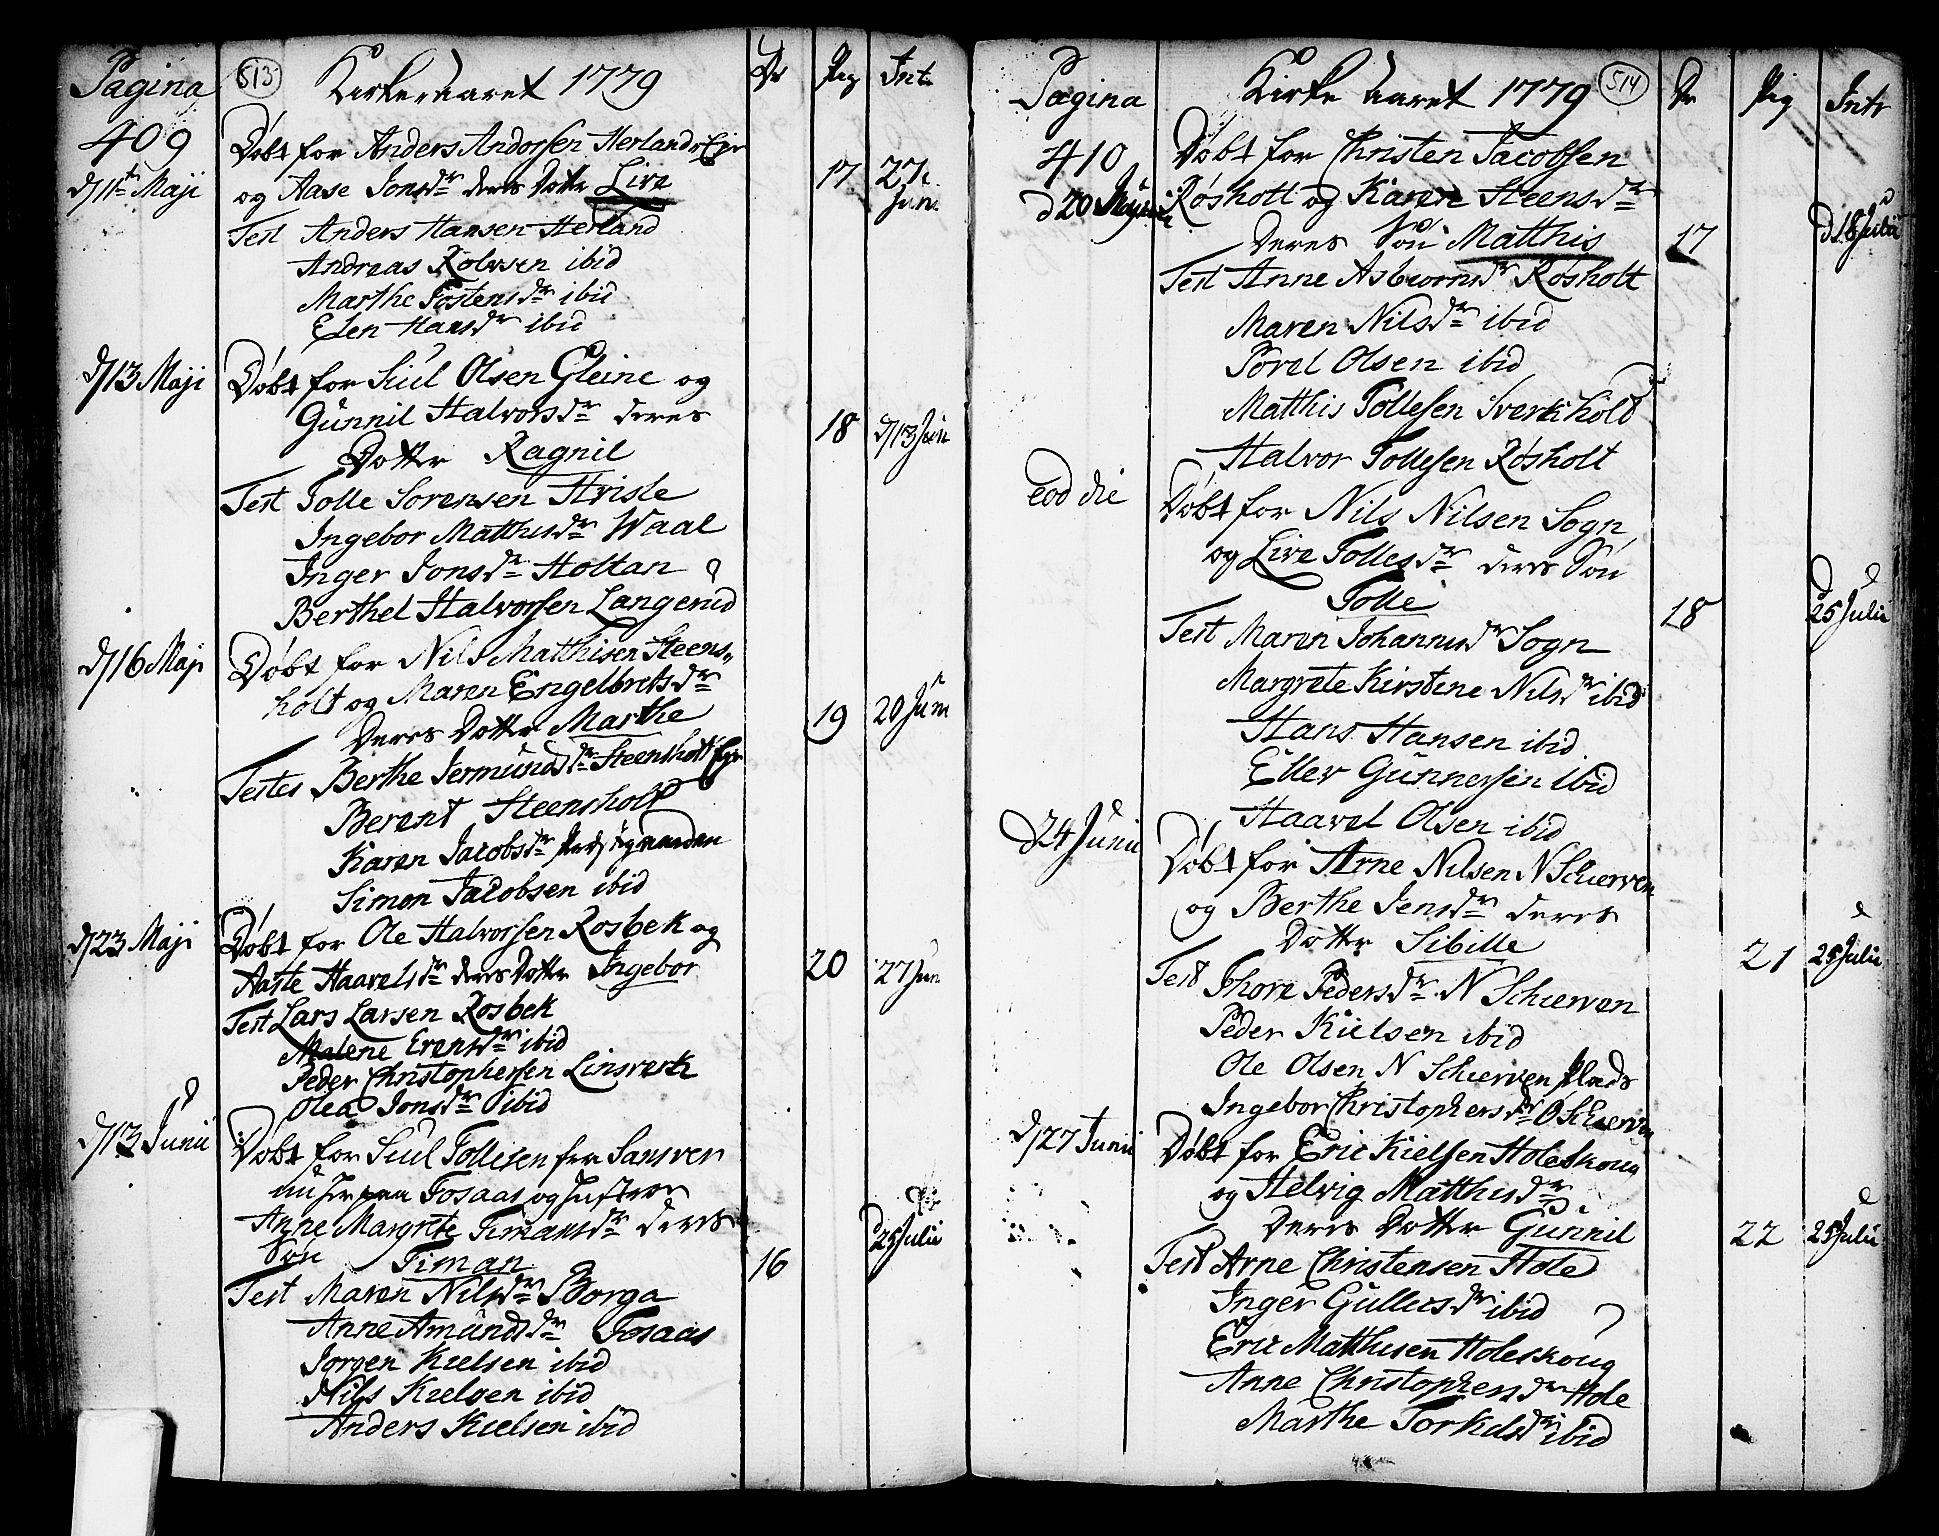 Pagina 513 Kirkeaaret 1779 Dr Pig Int.
409 Døbt for Anders Andersen Herland Ejer
d 11te Maji og Aase Jonsdr deres Dotter Live 17 27 Jun.
Test Anders Hansen Herland
Andreas Rolvsen ibid
Marthe Tostensdr ibid
Elen Hansdr ibid
d 13 Maji Døbt for Siul Olsen Gleine og
Gunnil Halvorsdr deres 18 d 13 Jun
Dotter Ragnil
Test Tolle Sørensen Hvisle
Ingebor Matthisdr Waal
Inger Jonsdr Holtan
Berthel Halvorsen Langerud
d 16 Maji Døbt for Nils Matthisen Steens-
holt og Maren Engelbretsdr
Deres Dotter Marthe 19 20 Juni
Testes Berthe Jermundsdr Steensholt Ejer
Berent Steensholt
Karen Jacobsdr
Simon Jacobsen ibid
d 23 Maji Døbt for Ole Halvorsen Rosbek og
Aaste Haavelsdr deres Dotter Ingebor 20 27 Jun.
Test Lars Larsen Rosbek
Malene Evensdr ibid
Peder Christophersen Linsverk
Olea Jonsdr ibid
d 13 Junii Døbt for Siul Tollesen fra Sansver
nu her paa Fosaas og Hustroe
Anne Margrete Timansdr deres d 25 Julii
Søn Timan 16
Test Maren Nilsdr Borga
Anne Amundsdr Fosaas
Jørgen Kielsen ibid
Nils Kielsen ibid
Anders Kielsen ibid
Pagina Kirke aaret 1779 514 Dr Pig Intr
410 Døbt for Christen Jacobsen
d 20 Røsholt og Karen Steensdr
Deres Søn Matthis 17 d 18 Julii
Test Anne Asbiørnsdr Røsholt
Maren Nilsdr ibid
Povel Olsen ibid
Matthis Tollefsen Sverkholt
Halvor Tollefsen Røsholt
eod die Døbt for Nils Nilsen Sogn
og Live Tollesdr deres Søn
Tolle 18 d 25 Julii
Test Maren Johannisdr Sogn
Margrete Kirstine Nilsdr ibid
Hans Hansen ibid
Ellev Gunnersen ibid
Haavel Olsen ibid
d 24 Junii Døbt for Arne Nilsen N Schierven
og Berthe Jensdr deres
Dotter Sibille 21 25 Julii
Test Thore Pedersdr N Schierven
Peder Kielsen ibid
Ole Olsen N Schierven Plads
Ingebor Christophersdr Ø Schierven
d 27 Junii Døbt for Eric Kielsen Holeskoug
og Helvig Matthisdr
Deres Dotter Gunnil 22 25 Julii
Test Arne Christensen Hole
Inger Gulliesdr ibid
Eric Matthisen Holeskoug
Anne Christophersdr Hole
Marthe Torkelsdr ibid